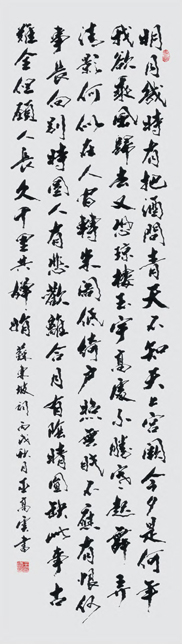 明月幾時有把酒問青天不知天上宮闕今夕是何年
我欲乘風歸去又恐瓊樓玉宇高處不勝寒起舞弄
清影何似在人間轉朱閣低綺户照無眠不應有恨何
事長向別時圓人有悲歡離合月有陰晴圓缺此事古
難全但願人長久千里共嬋娟 蘇東坡詞 丙戌秋月